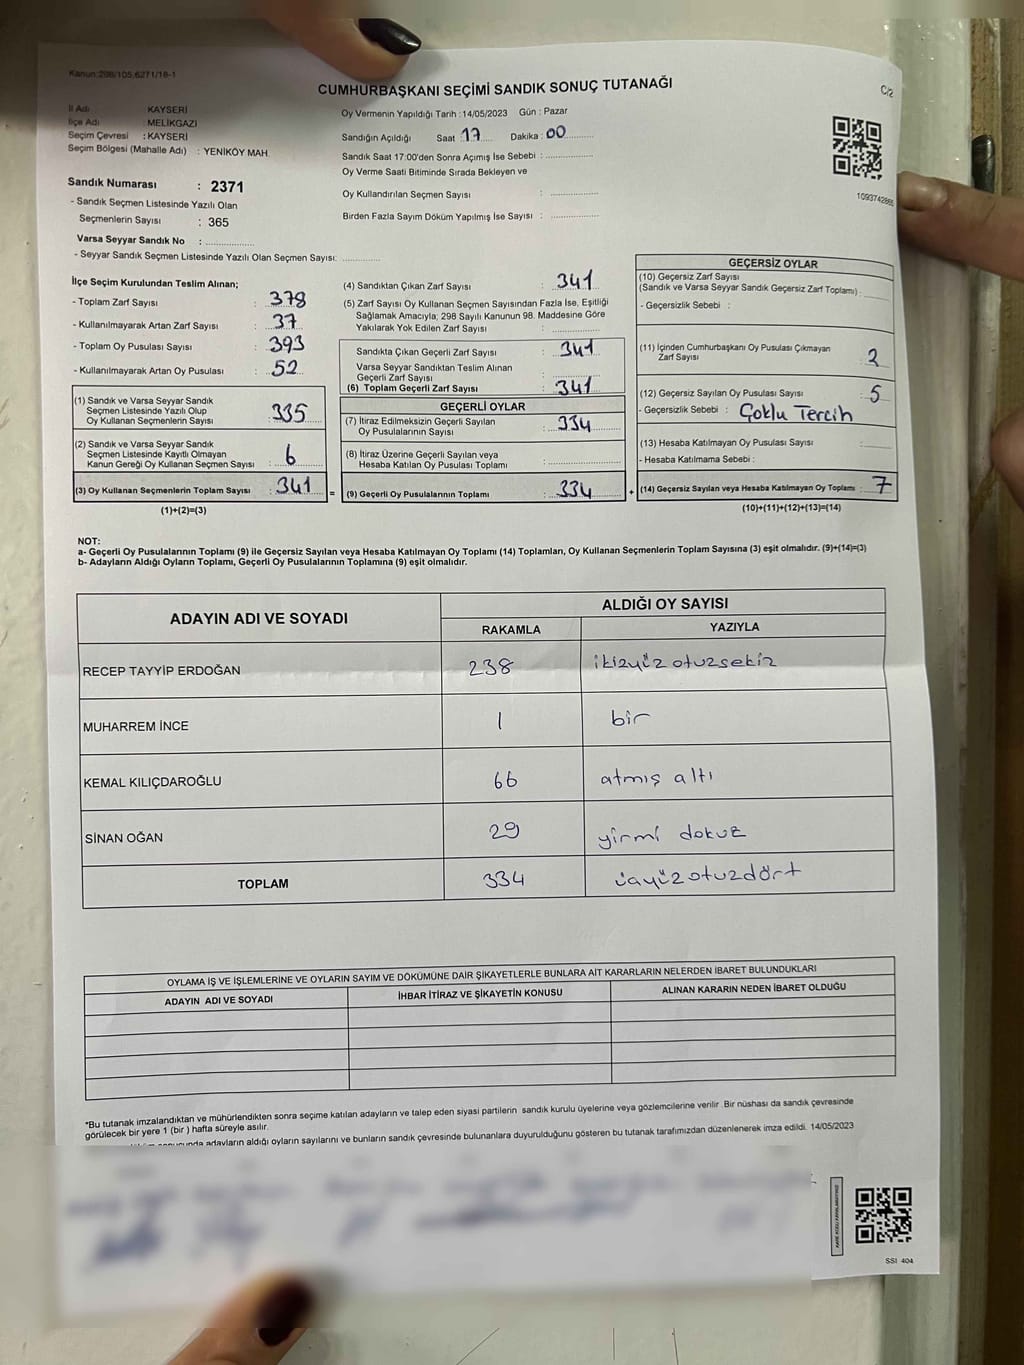 Kanun:298/105,6271/18-1
CUMHURBAŞKANI SEÇİMİ SANDIK SONUÇ TUTANAĞI
C/2
İl Adı KAYSERİ
İlçe Adı : MELİKGAZİ
Seçim Çevresi : KAYSERİ
Seçim Bölgesi (Mahalle Adı) : YENİKÖY MAH.
Oy Vermenin Yapıldığı Tarih :14/05/2023 Gün : Pazar
Sandığın Açıldığı Saat : 17 Dakika : 00
Sandık Saat 17:00'den Sonra Açımış İse Sebebi :
Oy Verme Saati Bitiminde Sırada Bekleyen ve
Oy Kullandırılan Seçmen Sayısı :
Birden Fazla Sayım Döküm Yapılmış İse Sayısı :
1093742865
Sandık Numarası : 2371
- Sandık Seçmen Listesinde Yazılı Olan
Seçmenlerin Sayısı : 365
Varsa Seyyar Sandık No :
- Seyyar Sandık Seçmen Listesinde Yazılı Olan Seçmen Sayısı:
İlçe Seçim Kurulundan Teslim Alınan;
- Toplam Zarf Sayısı : 378
- Kullanılmayarak Artan Zarf Sayısı : 37
- Toplam Oy Pusulası Sayısı : 393
- Kullanılmayarak Artan Oy Pusulası : 52
(1) Sandık ve Varsa Seyyar Sandık
Seçmen Listesinde Yazılı Olup
Oy Kullanan Seçmenlerin Sayısı : 335
(2) Sandık ve Varsa Seyyar Sandık
Seçmen Listesinde Kayıtlı Olmayan
Kanun Gereği Oy Kullanan Seçmen Sayısı : 6
(3) Oy Kullanan Seçmenlerin Toplam Sayısı : 341
(1)+(2)=(3)
(4) Sandıktan Çıkan Zarf Sayısı : 341
(5) Zarf Sayısı Oy Kullanan Seçmen Sayısından Fazla İse, Eşitliği
Sağlamak Amacıyla; 298 Sayılı Kanunun 98. Maddesine Göre
Yakılarak Yok Edilen Zarf Sayısı :
Sandıkta Çıkan Geçerli Zarf Sayısı : 341
Varsa Seyyar Sandıktan Teslim Alınan
Geçerli Zarf Sayısı :
(6) Toplam Geçerli Zarf Sayısı : 341
GEÇERLİ OYLAR
(7) İtiraz Edilmeksizin Geçerli Sayılan
Oy Pusulalarının Sayısı : 334
(8) İtiraz Üzerine Geçerli Sayılan veya
Hesaba Katılan Oy Pusulası Toplamı :
= (9) Geçerli Oy Pusulalarının Toplamı : 334 +
GEÇERSİZ OYLAR
(10) Geçersiz Zarf Sayısı
(Sandık ve Varsa Seyyar Sandık Geçersiz Zarf Toplamı) :
- Geçersizlik Sebebi :
(11) İçinden Cumhurbaşkanı Oy Pusulası Çıkmayan
Zarf Sayısı : 2
(12) Geçersiz Sayılan Oy Pusulası Sayısı : 5
- Geçersizlik Sebebi : Çoklu Tercih
(13) Hesaba Katılmayan Oy Pusulası Sayısı :
- Hesaba Katılmama Sebebi :
(14) Geçersiz Sayılan veya Hesaba Katılmayan Oy Toplamı : 7
(10)+(11)+(12)+(13)=(14)
NOT:
a- Geçerli Oy Pusulalarının Toplamı (9) ile Geçersiz Sayılan veya Hesaba Katılmayan Oy Toplamı (14) Toplamları, Oy Kullanan Seçmenlerin Toplam Sayısına (3) eşit olmalıdır. (9)+(14)=(3)
b- Adayların Aldığı Oyların Toplamı, Geçerli Oy Pusulalarının Toplamına (9) eşit olmalıdır.
ADAYIN ADI VE SOYADI ALDIĞI OY SAYISI
RAKAMLA YAZIYLA
RECEP TAYYİP ERDOĞAN 238 ikizyüz otuzsekiz
MUHARREM İNCE 1 bir
KEMAL KILIÇDAROĞLU 66 atmış altı
SİNAN OĞAN 29 yirmi dokuz
TOPLAM 334 üayüz otuzdört
OYLAMA İŞ VE İŞLEMLERİNE VE OYLARIN SAYIM VE DÖKÜMÜNE DAİR ŞİKAYETLERLE BUNLARA AİT KARARLARIN NELERDEN İBARET BULUNDUKLARI
ADAYIN ADI VE SOYADI İHBAR İTİRAZ VE ŞİKAYETİN KONUSU ALINAN KARARIN NEDEN İBARET OLDUĞU
*Bu tutanak imzalandıktan ve mühürlendikten sonra seçime katılan adayların ve talep eden siyasi partilerin sandık kurulu üyelerine veya gözlemcilerine verilir .Bir nüshası da sandık çevresinde
görülecek bir yere 1 (bir ) hafta süreyle asılır.
adayların aldığı oyların sayılarını ve bunların sandık çevresinde bulunanlara duyurulduğunu gösteren bu tutanak tarafımızdan düzenlenerek imza edildi. 14/05/2023
SSI 404